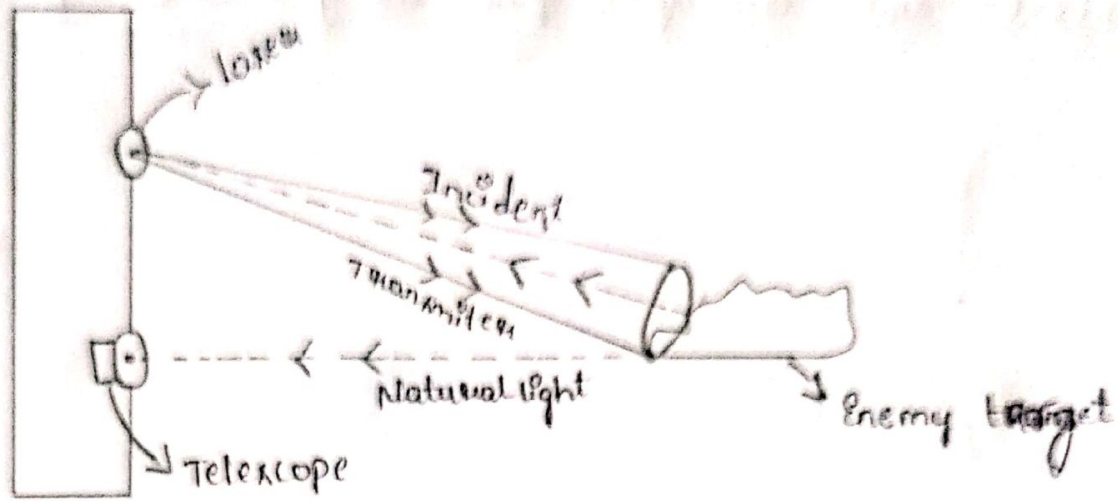 laser
Incident
Transmiter
Natural light
Enemy target
Telescope